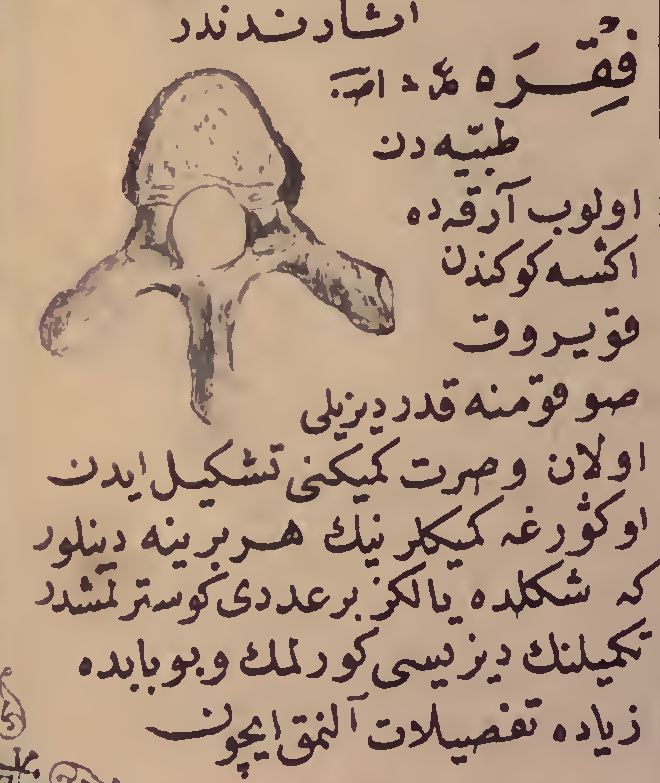 اشارندندر
فِقْرَه عر د اص.
طبیّه دن
اولوب آرقه ده
اکسه کوکندن
قویروق
صوقومنه قدر دیزیلی
اولان و صرت کمیکنی تشکیل ایدن
اوکورغه کمیکلرنیك هر برینه دینلور
که شکلده یالکز بر عددی کوسترلمشدر
تکمیلنك دیزیسی کورلمك و بو بابده
زیاده تفصیلات آلنمق ایچون